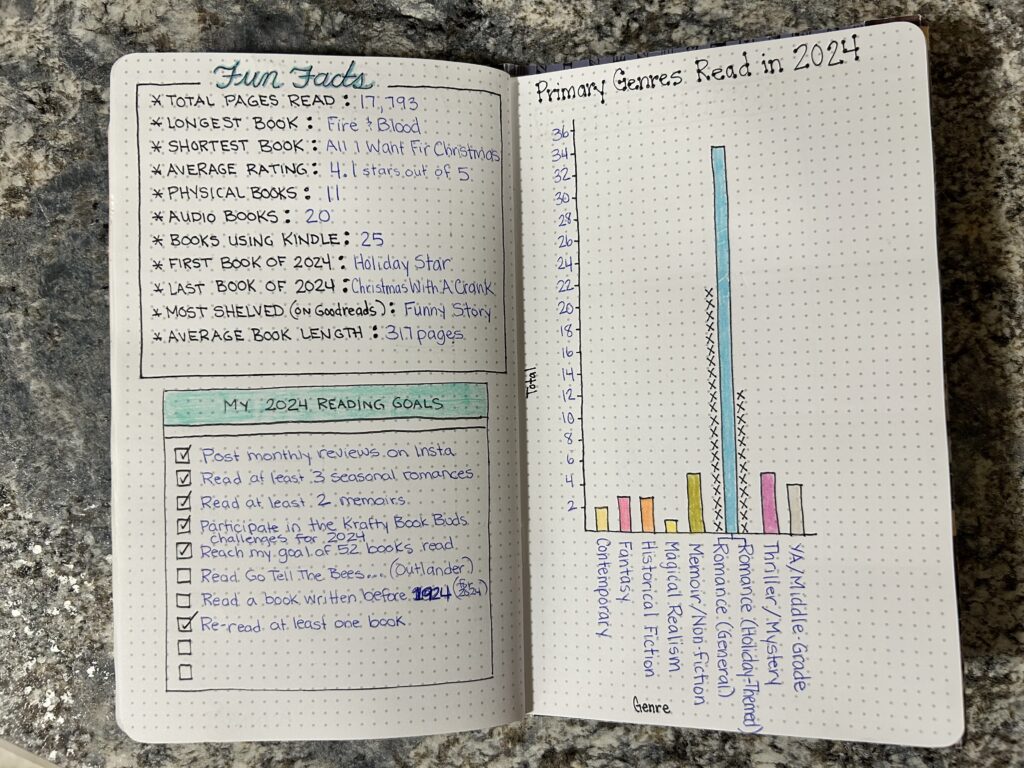 Fun Facts
* TOTAL PAGES READ : 17,793
* LONGEST BOOK : Fire & Blood
* SHORTEST BOOK : All I Want Fir Christmas
* AVERAGE RATING : 4.1 stars out of 5
* PHYSICAL BOOKS : 11
* AUDIO BOOKS : 20
* BOOKS USING KINDLE : 25
* FIRST BOOK OF 2024 : Holiday Star
* LAST BOOK OF 2024 : Christmas With A Crank
* MOST SHELVED (on Goodreads) : Funny Story
* AVERAGE BOOK LENGTH : 317 pages
MY 2024 READING GOALS
Post monthly reviews on Insta
Read at least 3 seasonal romances
Read at least 2 memoirs
Participate in the Krafty Book Buds
challenges for 2024
Reach my goal of 52 books read
Read Go Tell The Bees.... (Outlander)
Read a book written before 1924
Re-read at least one book
Primary Genres Read in 2024
36
34
32
30
28
26
24
22
20
18
16
14
12
10
8
6
4
2
Total
Contemporary
Fantasy
Historical Fiction
Magical Realism
Memoir/Non-Fiction
Romance (General)
Romance (Holiday-Themed)
Thriller/Mystery
YA/Middle-Grade
Genre